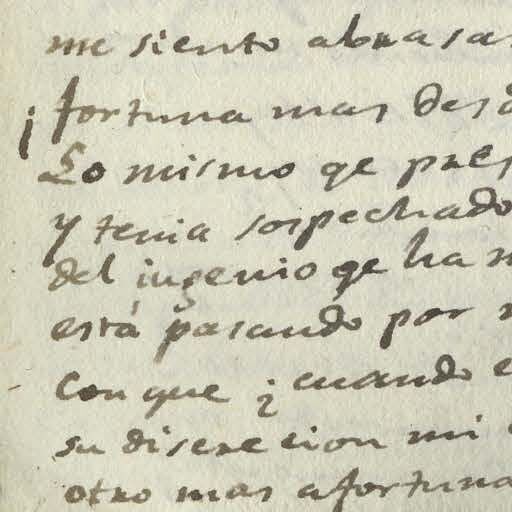 me siento abrasa
¡fortuna mas des
Lo mismo qe pres
y tenia sospechado
del ingenio qe ha
está pasando por
Con que ¿cuando e
su discrecion mi
otro mas afortuna